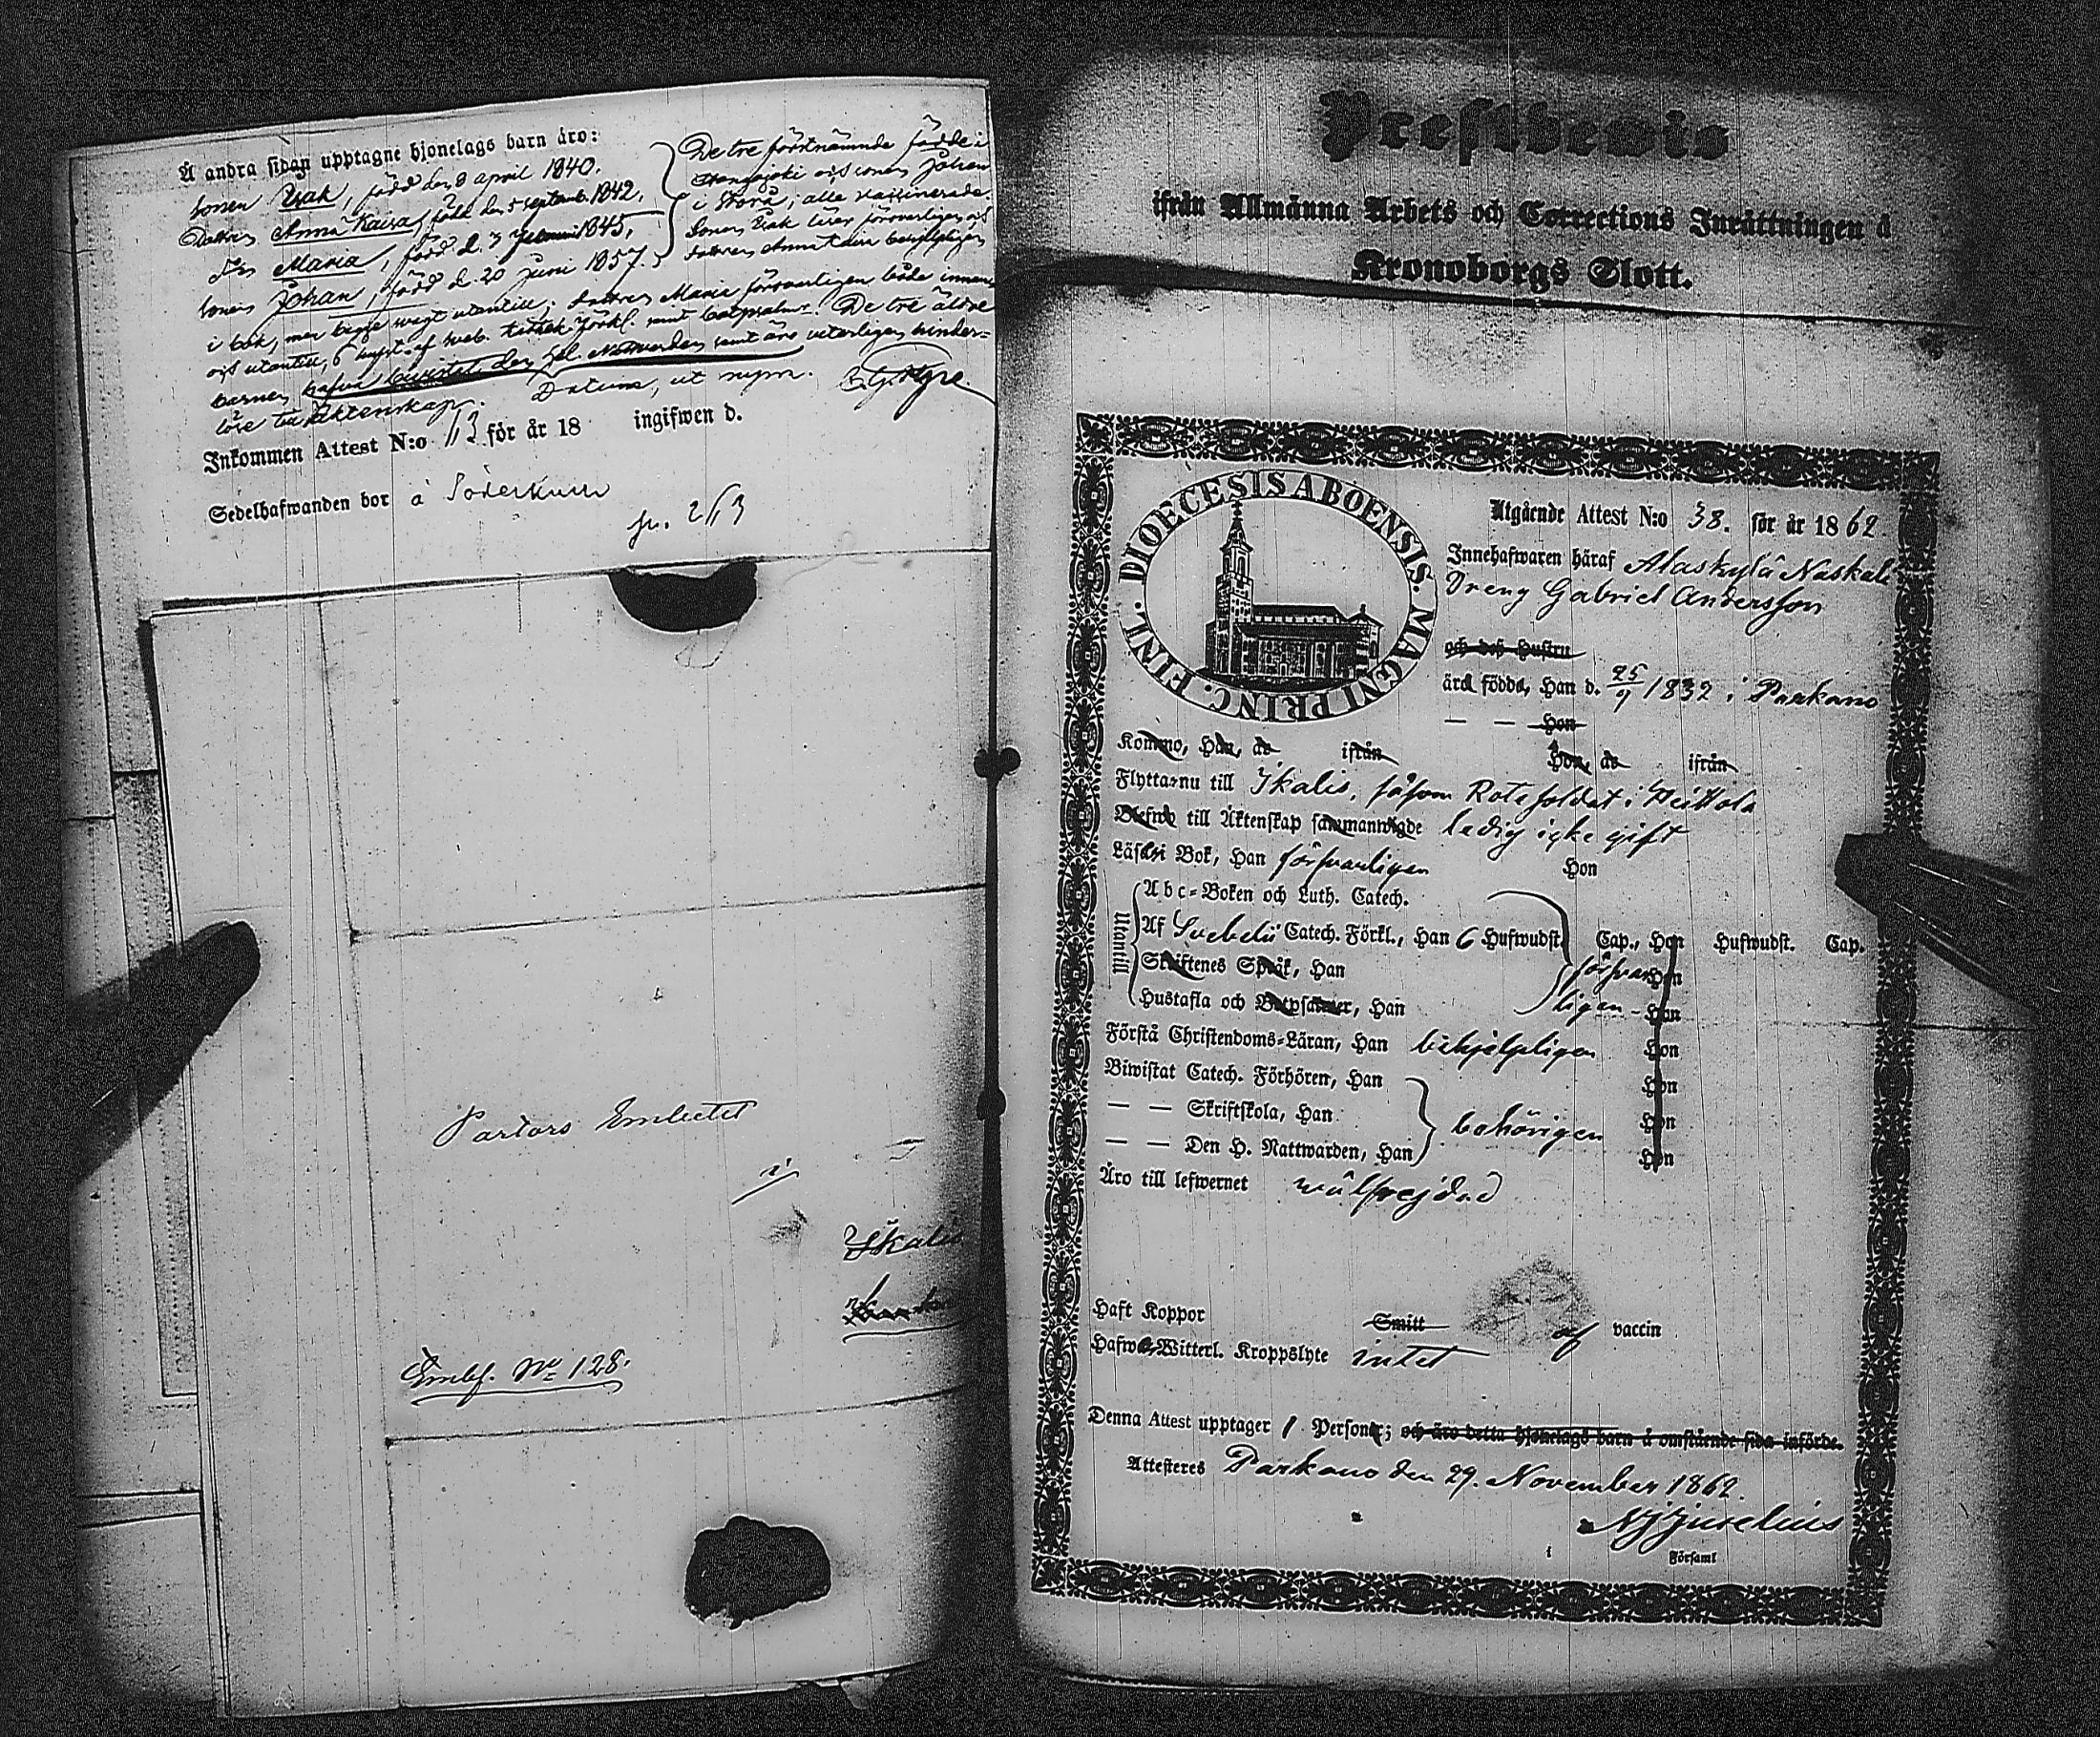 Å andra sidan upptagne hjonelags barn äro:
Sonen Isak, född den 8 april 1840.
Dottren Anna Kaisa, född den 5 septemb. 1842,
Maria, född d. 3 1845,
Sonen Johan, född d. 20 Juni 1857.
De tre förstnämnde födde i
och sonen Johan
i Storå; alla vaccinerade.
Sonen Isak läser försvarligen och
dottren Anna Kaisa behjelpligen
i bok, men begge svagt utantill; dottren Maria försvarligen både innan
och utantill, 6 hufst. af Sveb. Förkl. samt botpsalmr. De tre äldre
barnen hafva bevistat den hel. Nattvarden samt äro veterligen hinder=
löse till äktenskap. Datum, ut supra.
Inkommen Attest N:o 113 för år 18 ingifwen d.
Sedelhafwanden bor å
Pastors Embetet
i
Ikalis
Embf. No 128.
Prestbewis
ifrån Allmänna Arbets och Corrections Inrättningen å
Kronoborgs Slott.
DIOECESIS ABOENSIS. MAGNI PRINC. FINL.
Utgående Attest N:o 38. för år 1862.
Innehafwaren häraf Alaskylä Naskali
Dreng Gabriel Andersson
och deß Hustru
äro födde, Han d. 25/9 1832 i Parkano
— — Hon
Kommo, Han, år ifrån Hon, år ifrån
Flytta nu till Ikalis, såsom Rotesoldat i Heittola
Blefwo till Äktenskap sammanwigde ledig icke gift
Läsa i Bok, Han försvarligen Hon
Utantill
Abc-Boken och Luth. Catech.
Af Svebelii Catech. Förkl., Han 6 Hufwudst. Cap., Hon Hufwudst. Cap.
Skriftenes Språk, Han försvar- Hon
Hustafla och Botpsalmer, Han ligen - Hon
Förstå Christendoms-Läran, Han behjelpligen Hon
Biwistat Catech. Förhören, Han Hon
— — Skriftskola, Han behörigen Hon
— — Den H. Nattwarden, Han Hon
Äro till lefwernet välfrejdad
Haft Koppor Smitt af vaccin
Hafwa Witterl. Kroppslyte intet
Denna Attest upptager 1 Personer; och äro detta hjonelags barn å omstående sida införde.
Attesteres Parkano den 29. November 1862.
i Församl